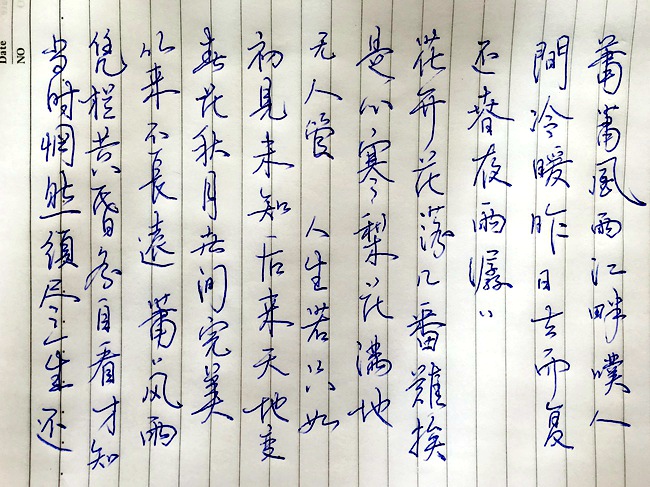 Date
NO
蕭蕭风雨江畔嘆人
間冷暖昨日去而复
还春夜雨潺潺
花开花落几番難挨
是心寒梨花满地
无人管 人生若只如
初見未知后来天地变
春花秋月世间完美
从来不長遠 蕭蕭风雨
凭栏共昏各自看才知
当时惘然須尽一生还